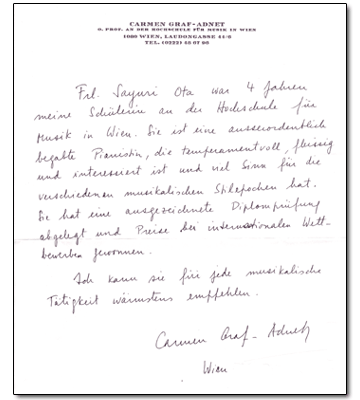 CARMEN GRAF-ADNET
O. PROF. AN DER HOCHSCHULE FÜR MUSIK IN WIEN
1080 WIEN, LAUDONGASSE
TEL. (0222)
Frl. Sayuri Ota war 4 Jahren
meine Schülerin an der Hochschule für
Musik in Wien. Sie ist eine ausserordentlich
begabte Pianistin, die temperamentvoll, fleissig
und interessiert ist und viel Sinn für die
verschiedenen musikalischen Stilepochen hat.
Sie hat eine ausgezeichnete Diplomprüfung
abgelegt und Preise bei internationalen Wett-
bewerben gewonnen.
Ich kann sie für jede musikalische
Tätigkeit wärmstens empfehlen.
Carmen Graf-Adnet
Wien